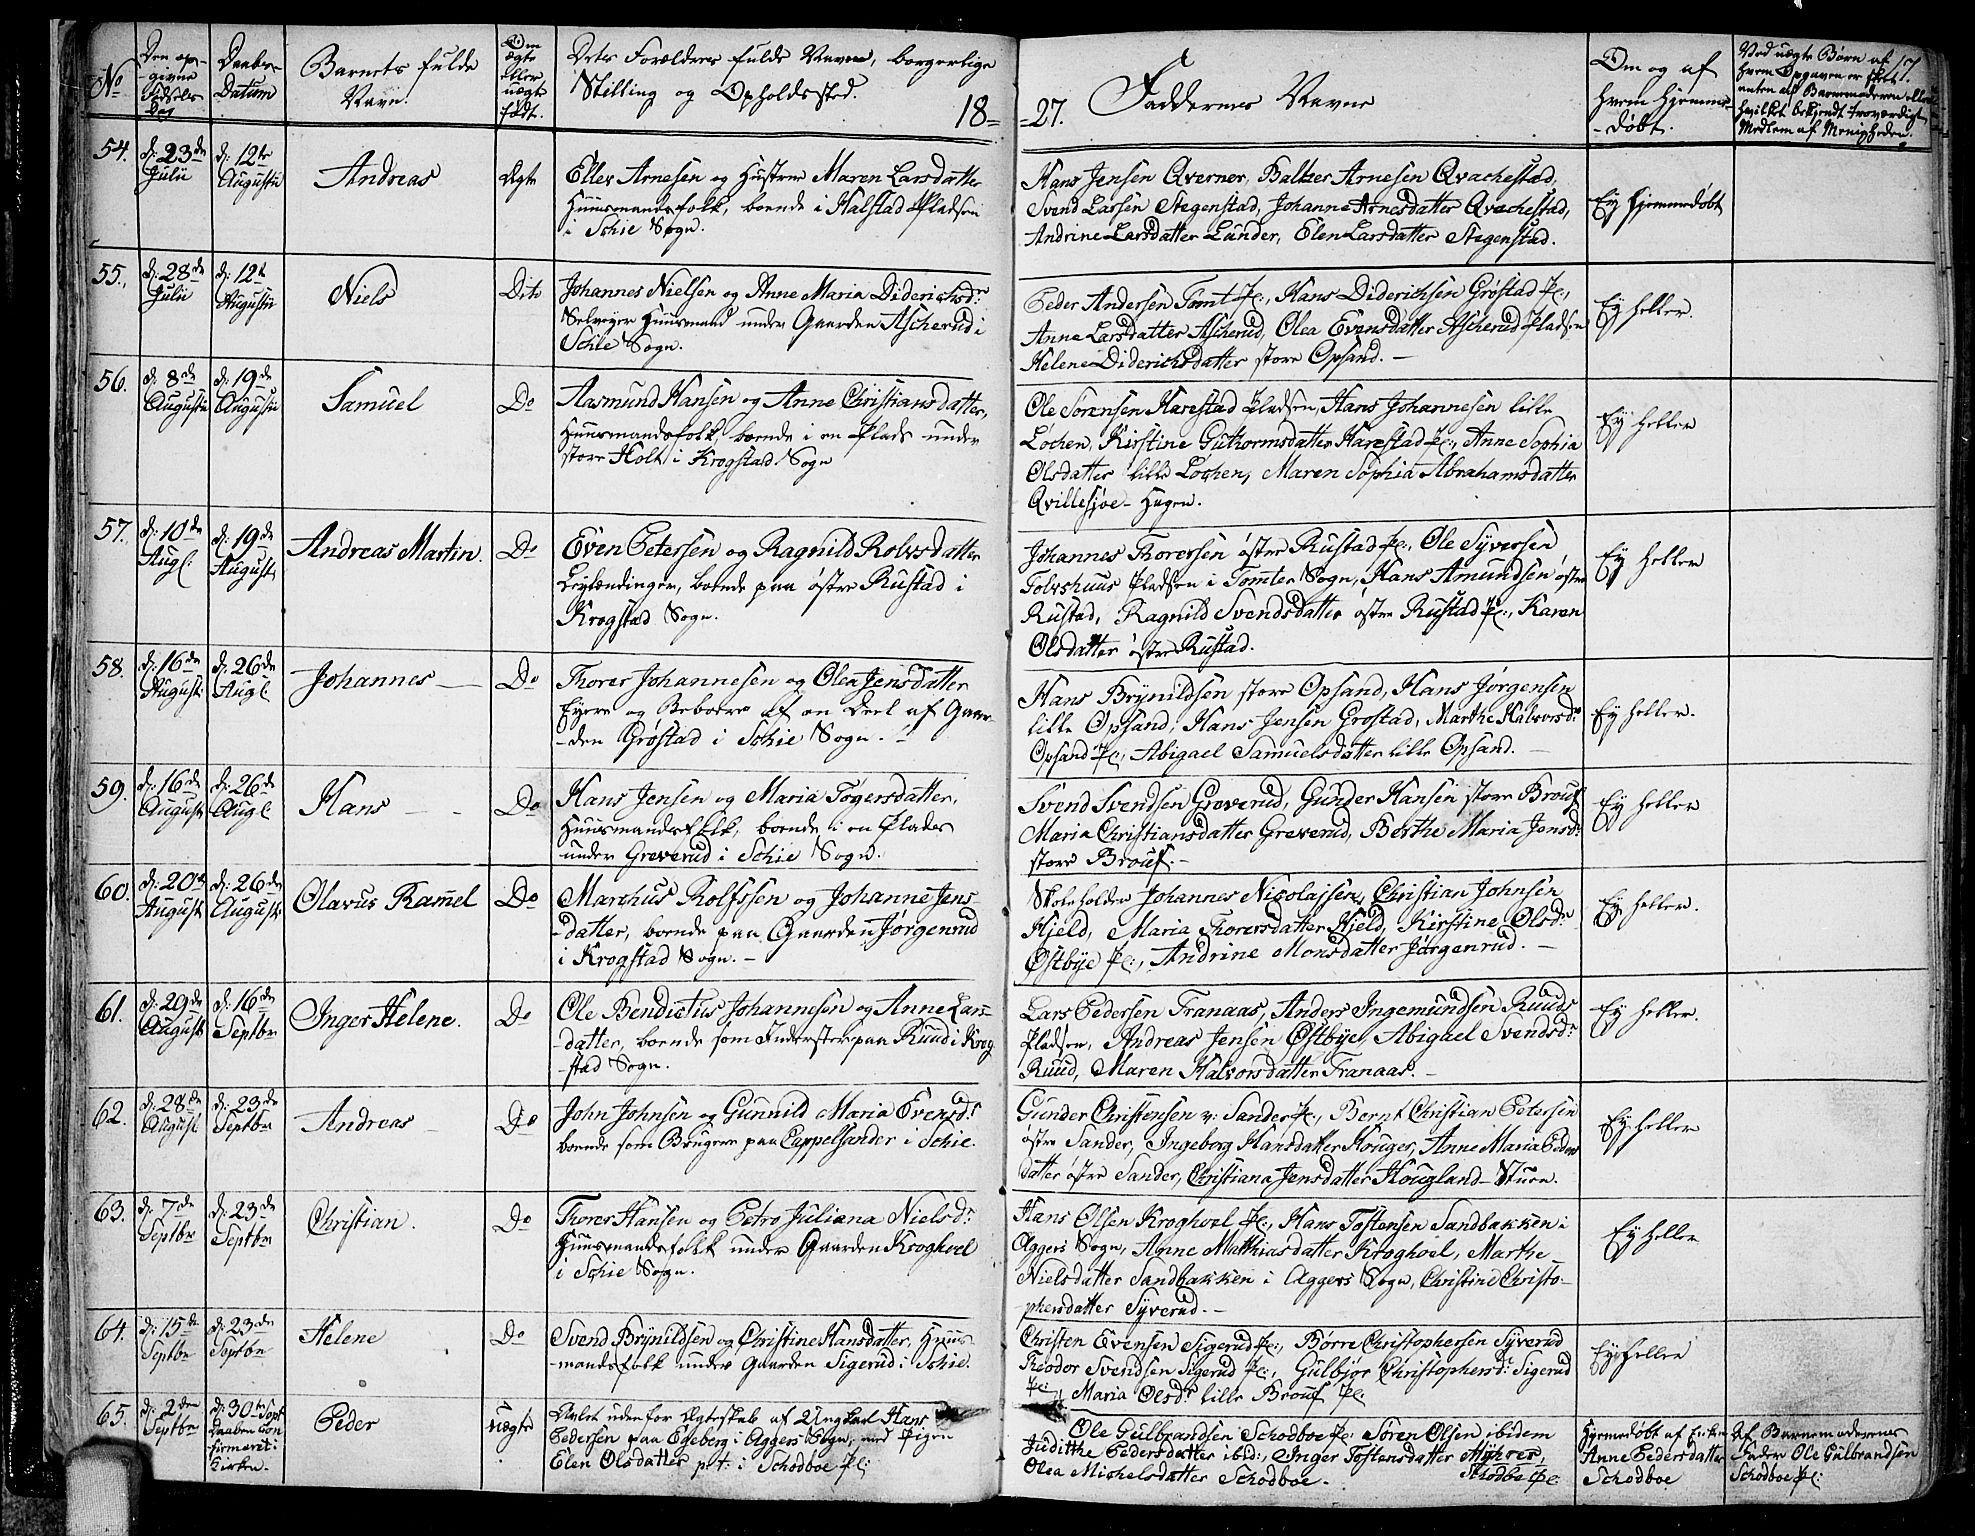 No
Den op-
-givne
Fødsels
Dag
Daabs-
Datum
Barnets fulde
Navn.
Om
ægte
eller
uægte
født.
Dets Forældres fulde Navne, borgerlige
Stilling og Opholdssted.
18=
=27.
Faddernes Navne
Om og af
hvem hjemme-
-døbt.
Ved uægte Børn af
hvem Opgaven er skeet
enten af Barnemoderen eller
hvilket bekjendt troværdigt
Medlem af Menigheden.
17.
54.
d: 23de
Julii
d: 12te
Augustii
Andreas
Ægte
Eller Arnesen og Hustrue Maren Larsdatter
Huusmandsfolk, boende i Halstad Pladsen
i Schie Sogn.
Hans Jensen Qverner, Baltzer Arnesen Qvachestad,
Svend Larsen Stegenstad, Johanne Arnesdatter Qvachestad,
Andrine Larsdatter Lunder, Elen Larsdatter Stegenstad.
Ey hjemmedøbt
55.
d: 28de
Julii
d: 12te
Augustii
Niels
Dito
Johannes Nielsen og Anne Maria Diderichsdr
Selveyer Huusmand under Gaarden Ascherud i
Schie Sogn.
Peder Andersen Tomt Pl:, Hans Diderichsen Grøstad Pl:,
Anne Larsdatter Ascherud, Olea Evensdatter Ascherud Pladsen
Helene Diderichsdatter store Opsand. —
Ey heller.
56.
d: 8de
Augustii
d: 19de
Augustii
Samuel
Do
Aasmund Hansen og Anne Christiansdatter,
Huusmandsfolk, boende i en Plads under
store Holt i Krogstad Sogn
Ole Sørensen Harestad Pladsen, Hans Johannesen lille
Løchen, Kirstine Guttormsdatter Harestad Pl:, Anne Sophia
Olsdatter lille Løchen, Maren Sophia Abrahamsdatter
Qvillesjøe-Hagen.
Ey heller
57.
d: 10de
Aug:
d: 19de
August
Andreas Martin.
Do
Even Petersen og Ragnild Rolvsdatter
Leylændinger, boende paa østre Rustad i
Krogstad Sogn.
Johannes Thorersen østre Rustad Pl:, Ole Syversen
Tolvshuus Pladsen i Tomter Sogn, Hans Amundsen østre
Rustad, Ragnild Svendsdatter østre Rustad Pl:, Karen
Olsdatter østre Rustad.
Ey heller
58.
d: 16de
August:
d: 26de
Aug:
Johannes —
Do
Thorer Johannesen og Olea Jensdatter
Eyere og Beboere af en Deel af Gaar-
-den Grøstad i Schie Sogn. —
Hans Brynildsen store Opsand, Hans Jørgensen
lille Opsand, Hans Jensen Grostad, Marthe Halvorsdr
Opsand Pl:, Abigael Samuelsdatter lille Opsand. —
Ey heller.
59.
d: 16de
August
d: 26de
Aug:
Hans —
Do
Hans Jensen og Maria Tøgersdatter,
Huusmandsfolk, boende i en Plads
under Greverud i Schie Sogn.
Svend Svendsen Greverud, Gunder Hansen store Brouf
Maria Christiansdatter Greverud, Berthe Maria Jensdr
store Brouf. —
Ey heller
60.
d: 20de
August
d: 26de
August:
Olavus Ramel
Do
Marchus Rolfssen og Johanne Jens-
-datter, boende paa Gaarden Jørgenrud
i Krogstad Sogn. —
Skoleholder Johannes Nicolajsen, Christian Johnsen
Hjeld, Maria Thorersdatter Hjeld, Kirstine Olsdr
Østbye Pl:, Andrine Monsdatter Jørgenrud. —
Ey heller.
61.
d: 29de
August
d: 16de
Septbr
Inger Helene.
Do
Ole Bendictus Johannesen og Anne Lars-
-datter, boende som Inderster paa Ruud i Krog-
-stad Sogn.
Lars Pedersen Tranaas, Anders Ingemundsen Ruuds
Pladsen, Andreas Jensen Østbye, Abigael Svendsdr
Ruud, Maren Halvorsdatter Tranaas. —
Ey heller.
62.
d: 28de
August
d: 23de
Septbr
Andreas —
Do
John Johnsen og Gunnild Maria Evensdr
boende som Brugere paa Cappelsander i Schie.
Gunder Christensen v: Sander Pl:, Bernt Christian Petersen
østre Sander, Ingeborg Hansdatter Kruger, Anne Maria Peders
datter østre Sander, Christiana Jensdatter Hougland-Stuen.
Ey heller
63.
d: 7de
Septbr
d: 23de
Septbr
Christian.
Do
Thorer Hansen og Petro Juliana Nielsdr
Huusmandsfolk under Gaarden Kroghoel
i Schie Sogn.
Hans Olsen Kroghoel Pl:, Hans Tostensen Sandbakken i
Aggers Sogn, Anne Matthiasdatter Kroghoel, Marthe
Nielsdatter Sandbakken i Aggers Sogn, Christine Christo-
phersdatter Syverud. —
Ey heller
64.
d: 15de
Septbr
d: 23de
Septbr
Helene
Do
Svend Brynildsen og Christine Hansdatter, Huus-
-mandsfolk under Gaarden Sigerud i Schie.
Christen Evensen Sigerud Pl:, Børre Christophersen Syverud
Theodor Svendsen Sigerud Pl:, Gulbjør Christophersdr Sigerud
Pl: Maria Olsdr lille Brouf Pl:
Ey heller
65.
d: 2den
Septbr
d: 30te Sept
Daaben con
firmeret i
Kirken.
Peder
uægte
Avlet udenfor Ægteskab af Ungkarl Hans
Pedersen paa Egeberg i Aggers Sogn, med Pigen
Elen Olsdatter p.t: i Schodboe Pl:
Ole Gulbrandsen Schodboe Pl: Søren Olsen ibidem
Judithe Pedersdatter ibid:, Inger Tostensdatter Myhrer,
Olea Michelsdatter Schodboe.
Schodboe Pl:
Hjemmedøbt af Enken
Anne Pedersdatter
Schodboe
Af Barnemoderens
Fader Ole Gulbrandsen
Schodboe Pl: